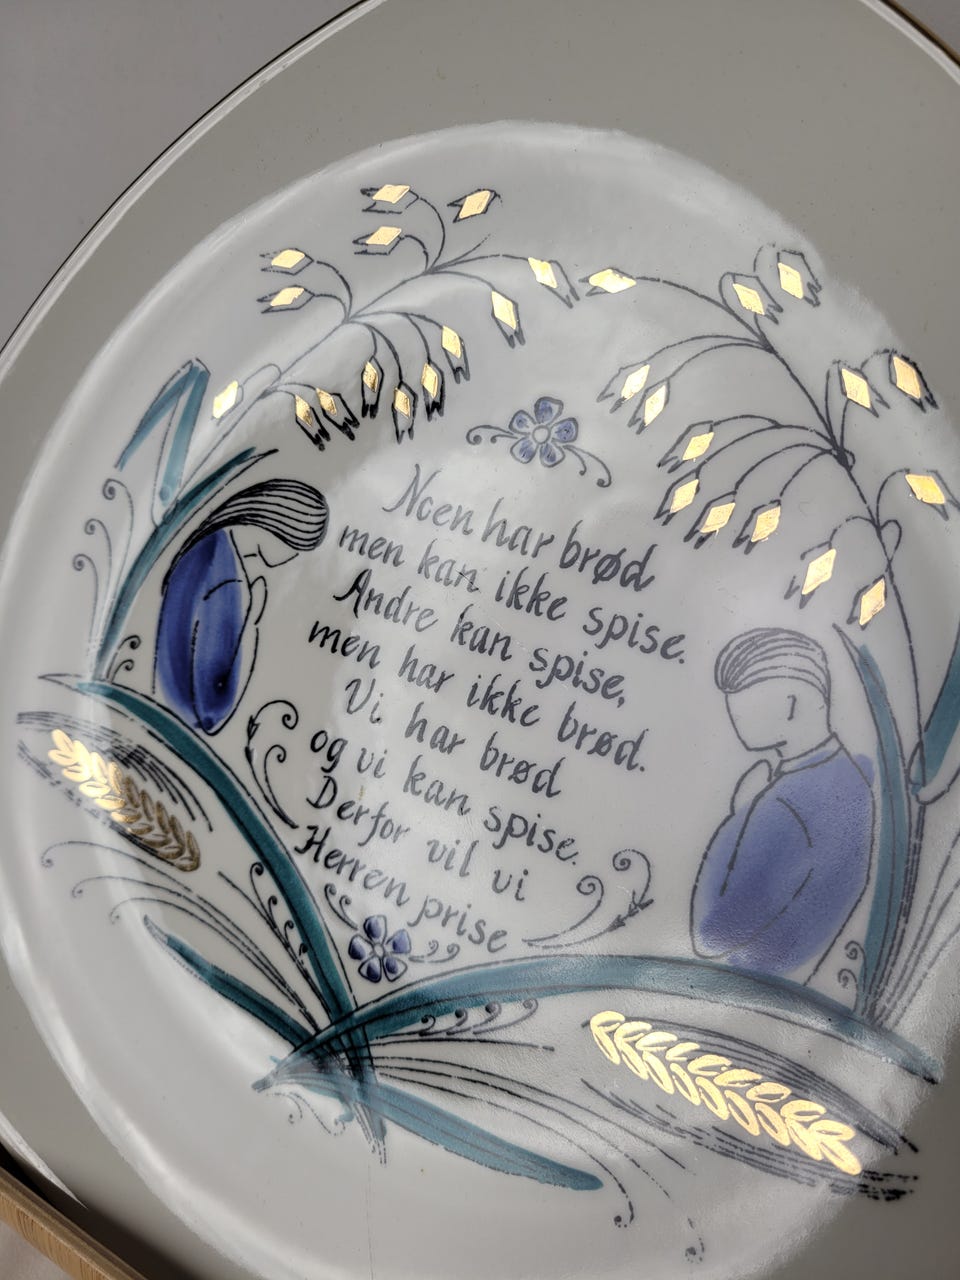 Noen har brød
men kan ikke spise.
Andre kan spise,
men har ikke brød.
Vi har brød
og vi kan spise.
Derfor vil vi
Herren prise